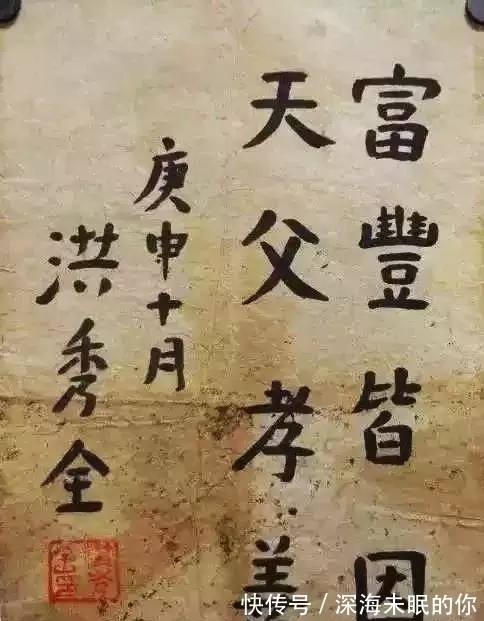 富豐皆因
天父孝美
庚申十月
洪秀全
快传号 / 深海未眠的你